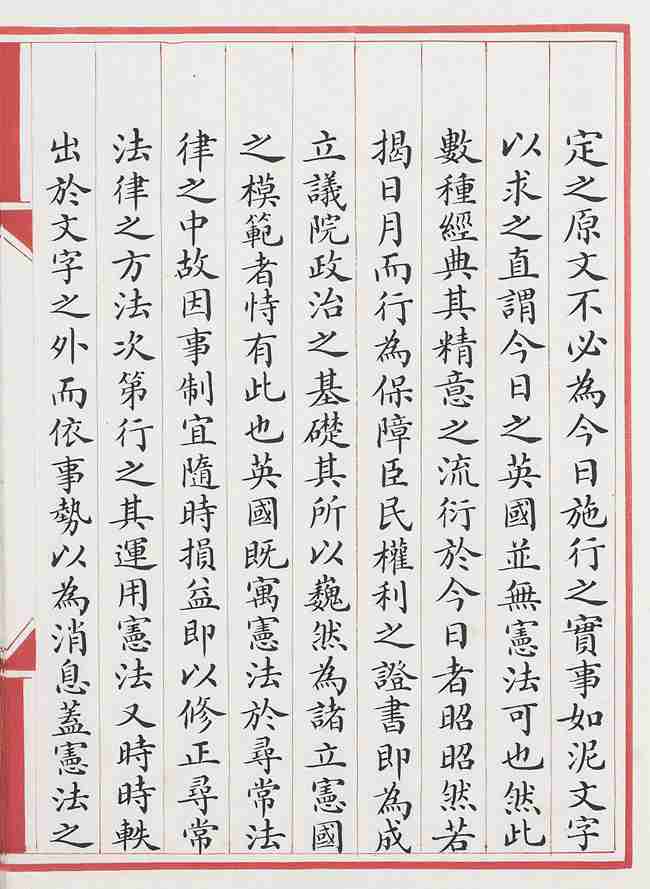 定之原文不必為今日施行之實事如泥文字
以求之直謂今日之英國並無憲法可也然此
數種經典其精意之流衍於今日者昭昭然若
揭日月而行為保障臣民權利之證書即為成
立議院政治之基礎其所以巍然為諸立憲國
之模範者恃有此也英國既寓憲法於尋常法
律之中故因事制宜隨時損益即以修正尋常
法律之方法次第行之其運用憲法又時時軼
出於文字之外而依事勢以為消息蓋憲法之